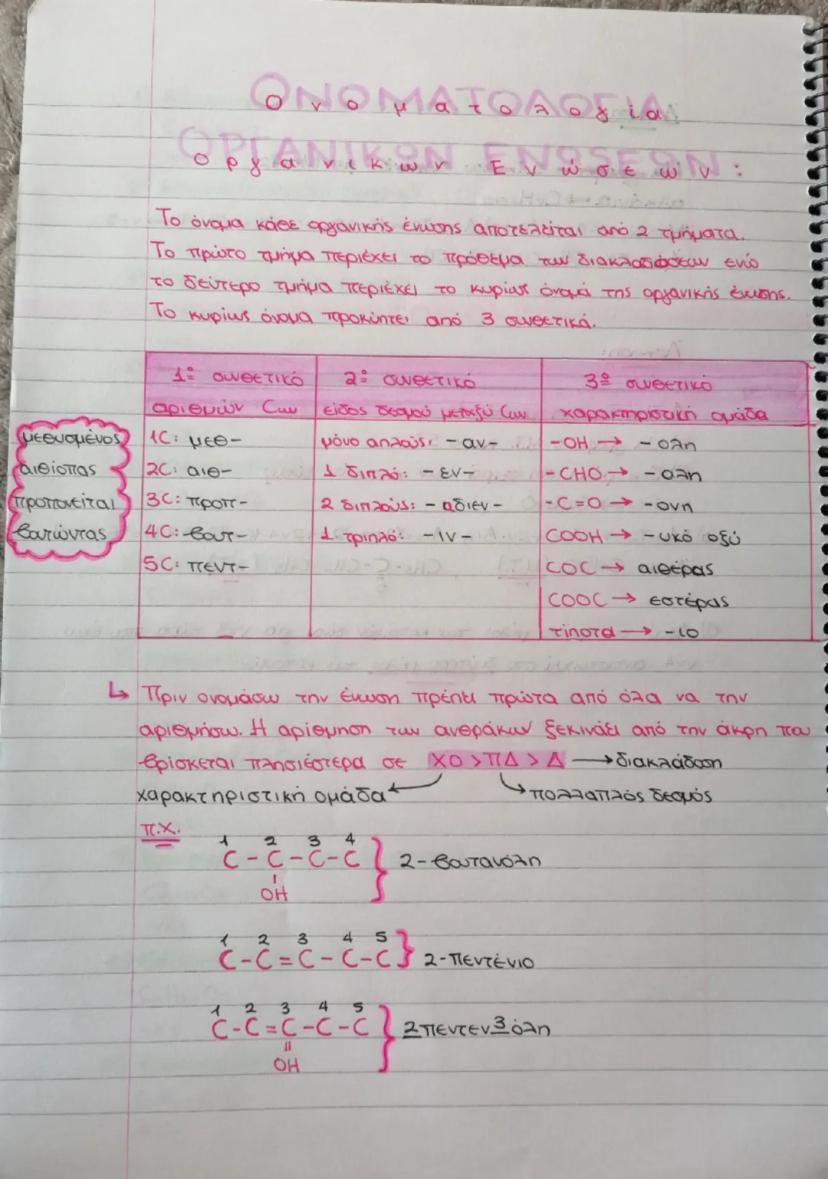 Ονοματολογία
Οργανικών Ενώσεων:
Το όνομα κάθε οργανικής ένωσης αποτελείται από 2 τμήματα.
Το πρώτο τμήμα περιέχει το πρόθεμα των διακλαδώσεων ενώ
το δεύτερο τμήμα περιέχει το κυρίως όνομα της οργανικής ένωσης.
Το κυρίως όνομα προκύπτει από 3 συνθετικά.
1º συνθετικό 2º συνθετικό 3º συνθετικό
αριθμών Cων είδος δεσμού μεταξύ Cων χαρακτηριστική ομάδα
μεθυσμένος 1C: μεθ- μόνο απλούς: -αν- -OH → -ολη
αιθίοπας 2C: αιθ- 1 διπλό: -εν- -CHO → -αλη
προπονείται 3C: προπ- 2 διπλούς: -αδιεν- -C=O → -ονη
βουτώντας 4C: βουτ- 1 τριπλό: -ιν- COOH → -ικό οξύ
5C: πεντ- COC → αιθέρας
COOC → εστέρας
τίποτα → -ιο
↳ Πριν ονομάσω την ένωση πρέπει πρώτα από όλα να την
αριθμήσω. Η αρίθμηση των ανθράκων ξεκινάει από την άκρη που
βρίσκεται πλησιέστερα σε ΧΟ > ΠΔ > Δ → διακλάδωση
χαρακτηριστική ομάδα πολλαπλός δεσμός
π.χ. 1 2 3 4
C - C - C - C } 2-βουτανόλη
OH
1 2 3 4 5
C - C = C - C - C } 2-πεντένιο
1 2 3 4 5
C - C = C - C - C } 2πεντεν3όλη
OH